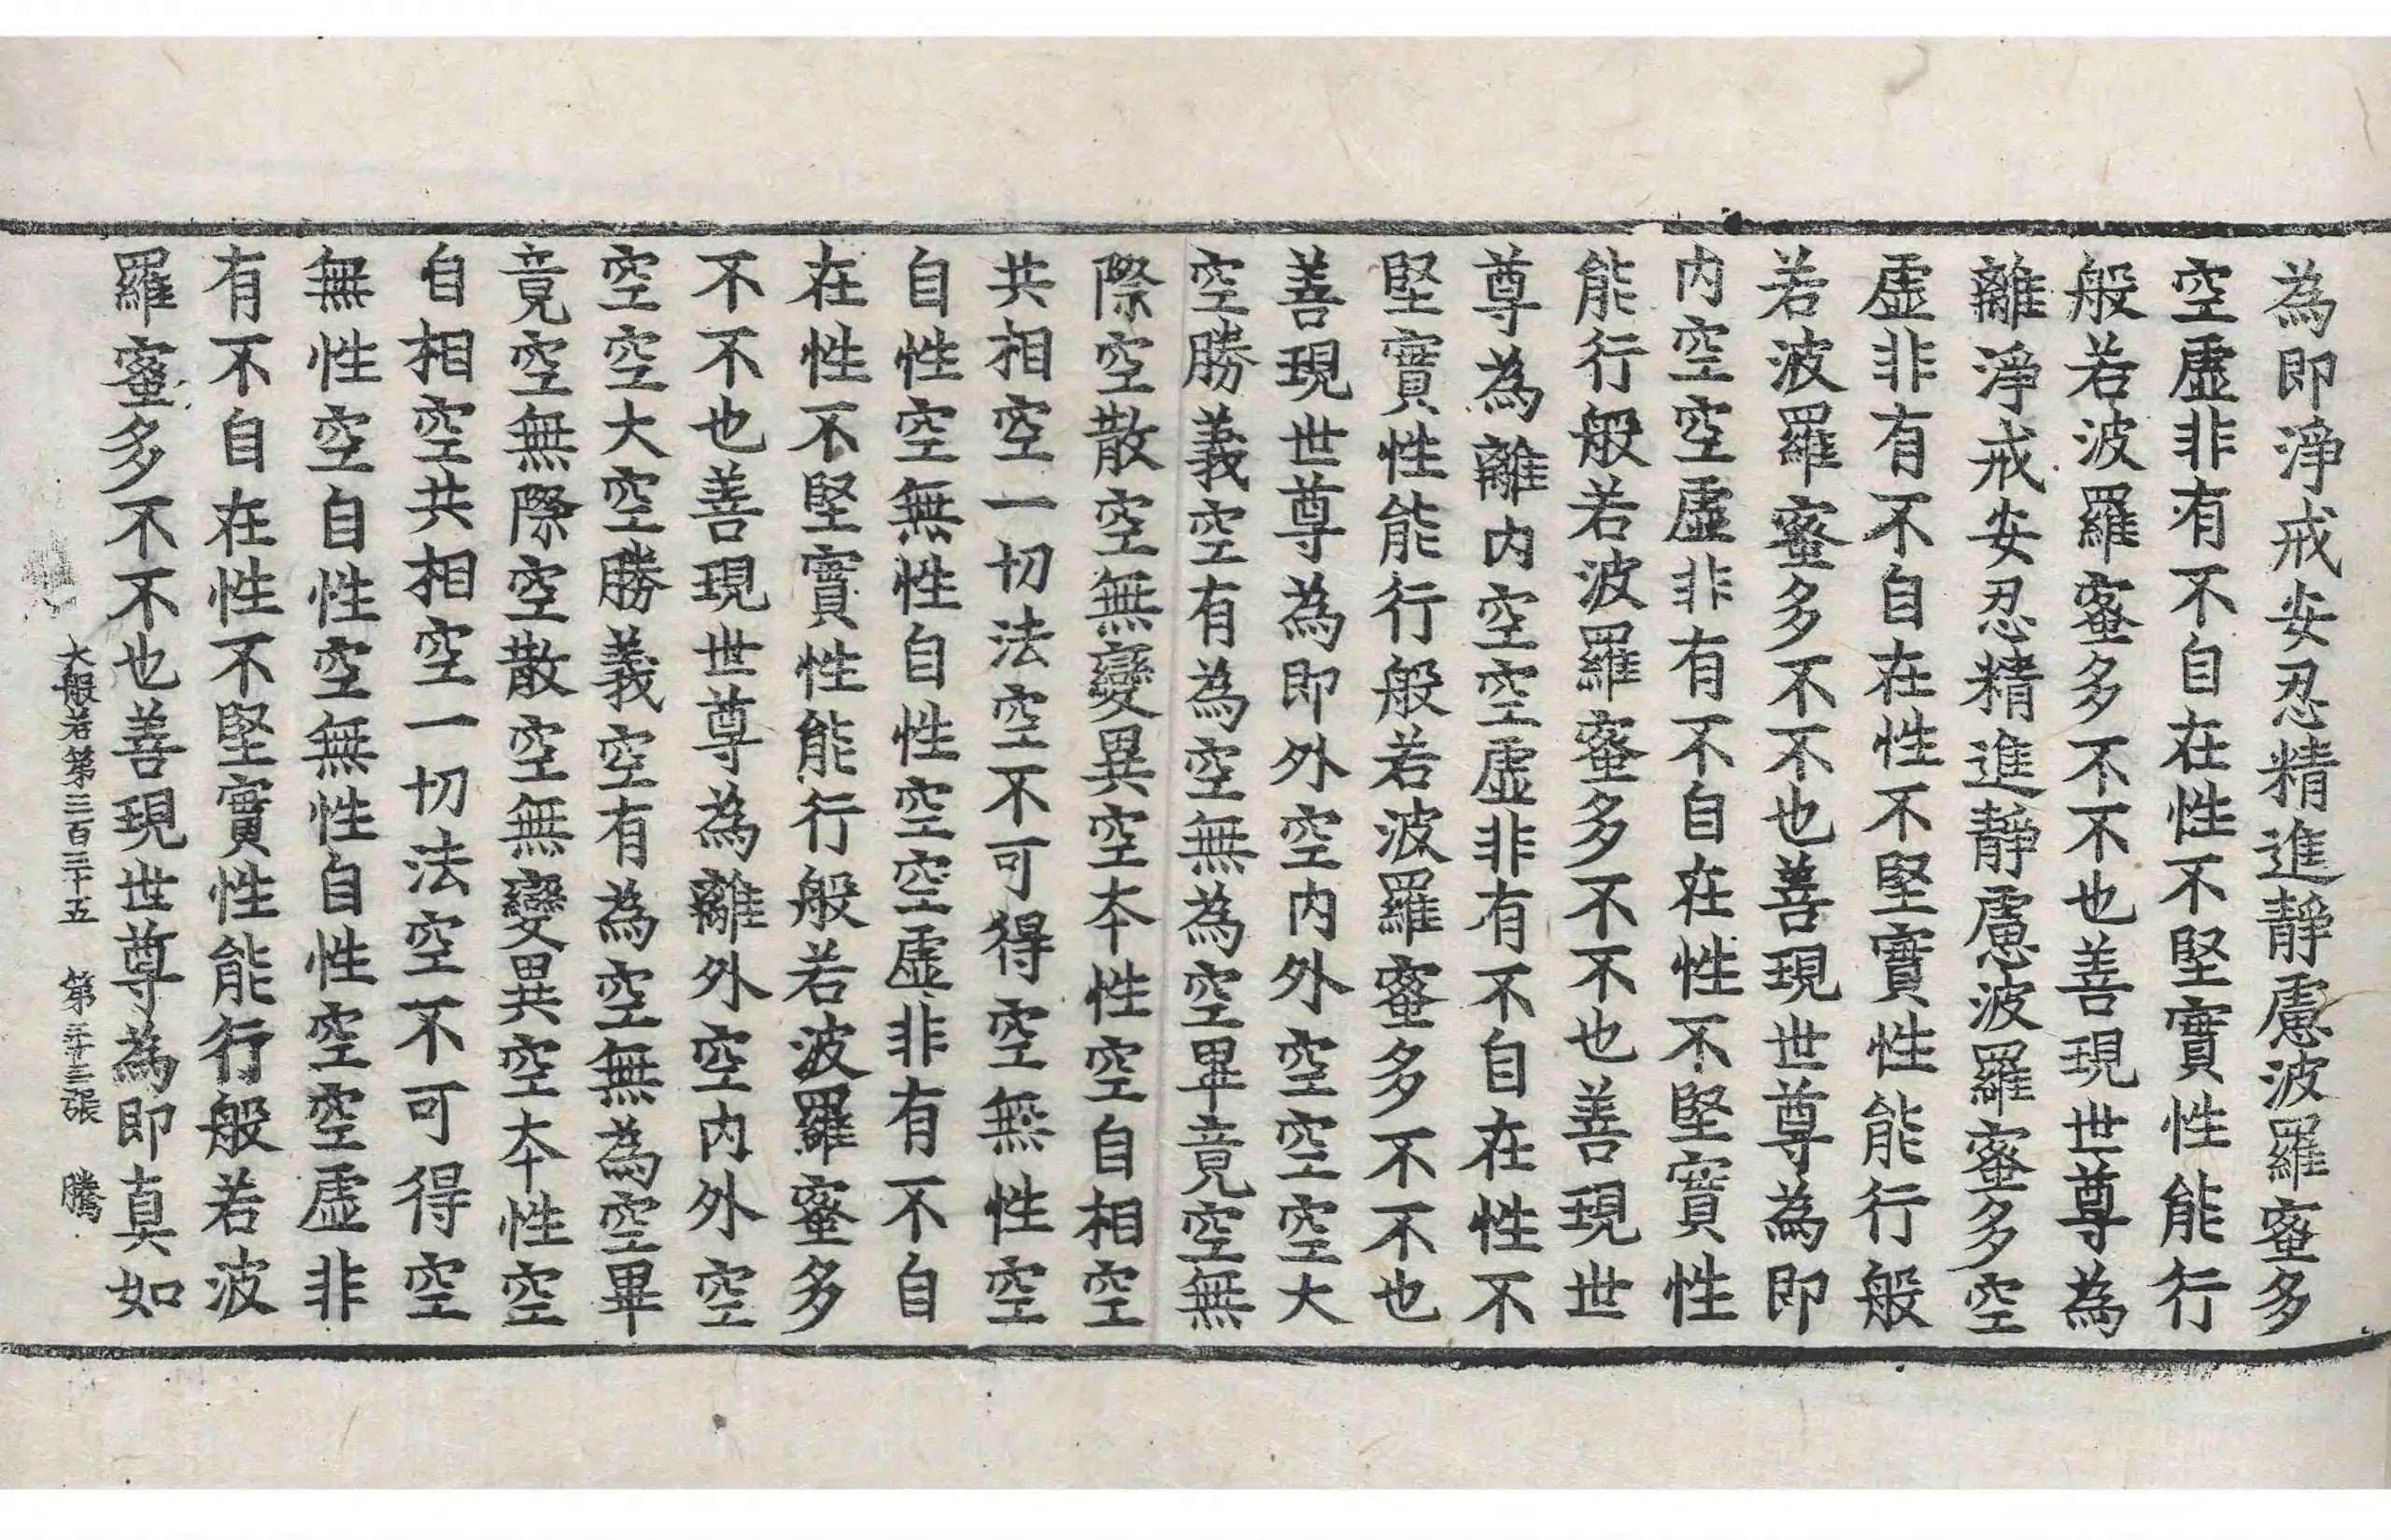 為即淨戒安忍精進靜慮波羅蜜多
空虛非有不自在性不堅實性能行
般若波羅蜜多不不也善現世尊為
離淨戒安忍精進靜慮波羅蜜多空
虛非有不自在性不堅實性能行般
若波羅蜜多不不也善現世尊為即
内空空虛非有不自在性不堅實性
能行般若波羅蜜多不不也善現世
尊為離内空空虛非有不自在性不
堅實性能行般若波羅蜜多不不也
善現世尊為即外空内外空空空大
空勝義空有為空無為空畢竟空無
際空散空無變異空本性空自相空
共相空一切法空不可得空無性空
自性空無性自性空空虛非有不自
在性不堅實性能行般若波羅蜜多
不不也善現世尊為離外空内外空
空空大空勝義空有為空無為空畢
竟空無際空散空無變異空本性空
自相空共相空一切法空不可得空
無性空自性空無性自性空空虛非
有不自在性不堅實性能行般若波
羅蜜多不不也善現世尊為即真如
大般若第三百三十五 第二十三張 騰